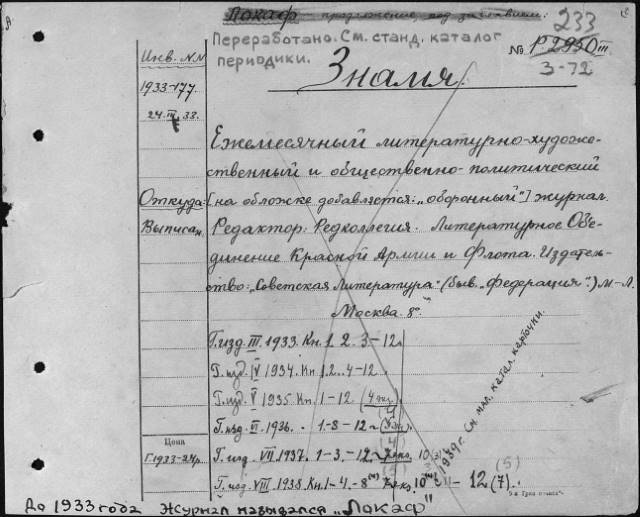 Локаф продолжение под заглавием:
233
Переработано. См. станд. каталог
периодики.
№ Р.2950 III
3-72
Знамя.
Инв. NN
1933-177
24. 33.
Откуда:
Выписан
Ежемесячный литературно-художе-
ственный и общественно-политический
[на обложке добавляется: „оборонный"] журнал.
Редактор: Редколлегия. Литературное Объе-
динение Красной Армии и Флота. Издатель-
ство: „Советская Литература" (быв. „Федерация") М-Л.
Москва. 8°
Г.изд. III. 1933. Кн. 1. 2. 3.-12.
Г. изд. IV 1934. Кн. 1.2..4-12.
Г.изд. V 1935. Кн. 1-12 (4 экз.)
Г.изд. VI. 1936. . 1.-8-12
Г. изд. VII. 1937. 1-3.-12.
Г. изд. VIII. 1938. Кн. 1-4.-8
10
12 (7).
(5)
1939г. См. нал. катал. карточки.
Цена
Г.1933-24р.
До 1933 года Журнал назывался „Локаф"